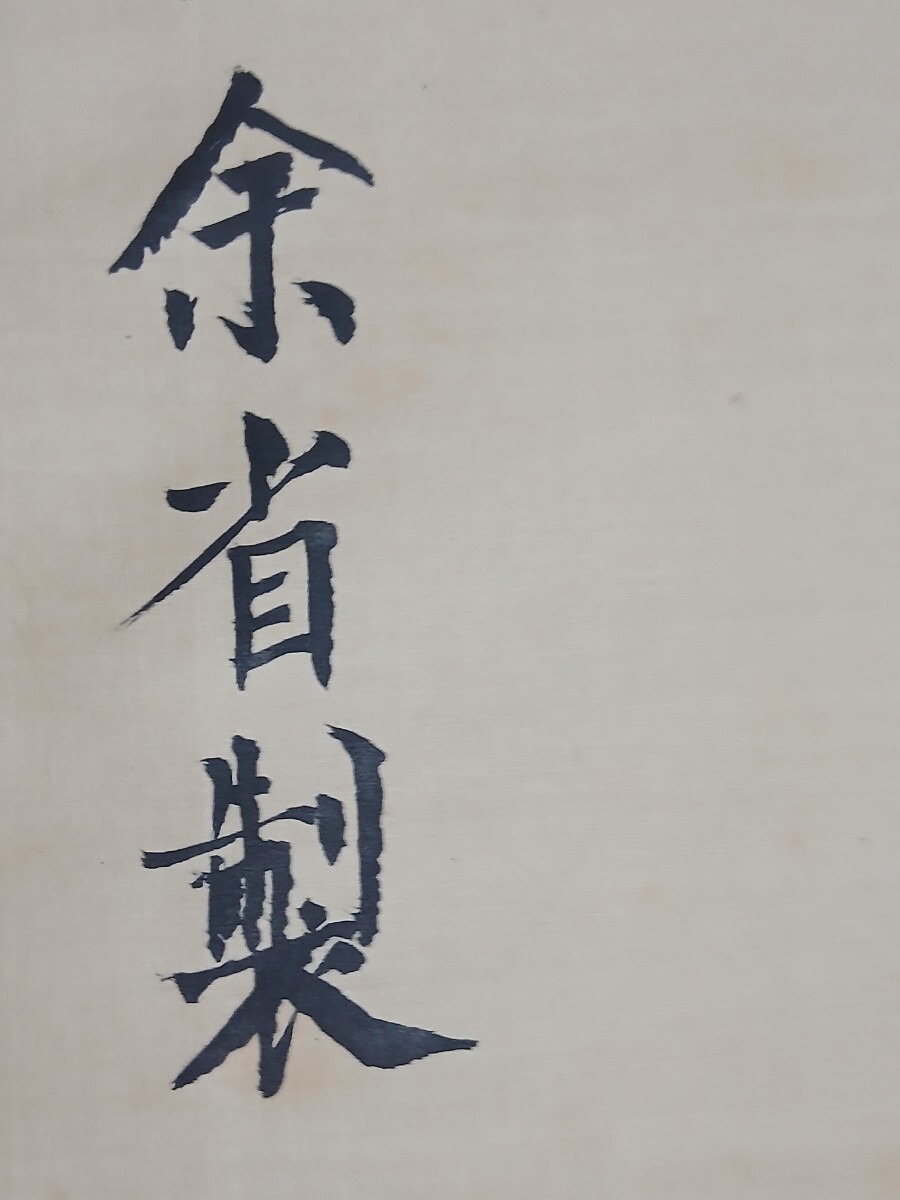 余省製